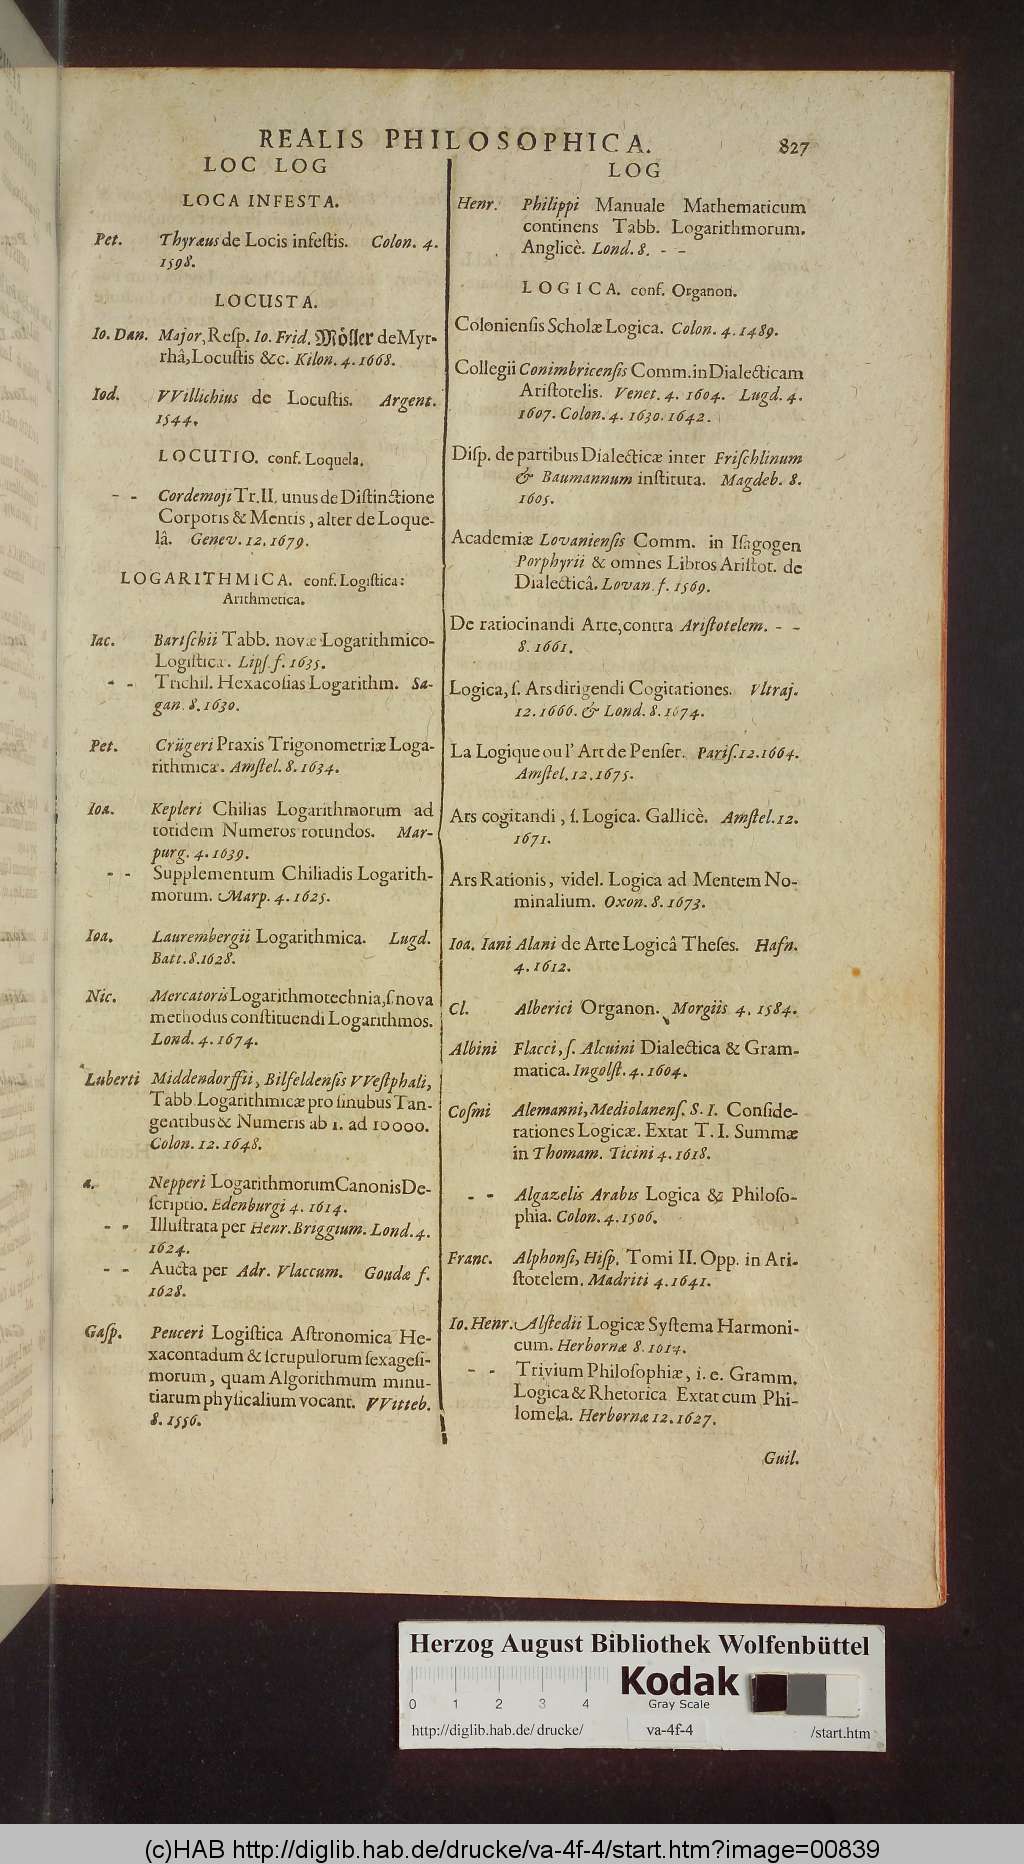 REALIS PHILOSOPHICA. 827
LOC LOG
LOCA INFESTA.
Pet. Thyræus de Locis infestis. Colon. 4.
1598.
LOCUSTA.
Io. Dan. Major, Resp. Io. Frid. Möller de Myr-
rhâ, Locustis &c. Kilon. 4. 1668.
Iod. VVillichius de Locustis. Argent.
1544.
LOCUTIO. conf. Loquela.
- - Cordemoji Tr. II. unus de Distinctione
Corporis & Mentis, alter de Loque-
lâ. Genev. 12. 1679.
LOGARITHMICA. conf. Logistica:
Arithmetica.
Iac. Bartschii Tabb. novæ Logarithmico-
Logisticæ. Lips. f. 1635.
- - Trichil. Hexacosias Logarithm. Sa-
gan. 8. 1630.
Pet. Crügeri Praxis Trigonometriæ Loga-
rithmicæ. Amstel. 8. 1634.
Ioa. Kepleri Chilias Logarithmorum ad
totidem Numeros rotundos. Mar-
purg. 4. 1639.
- - Supplementum Chiliadis Logarith-
morum. Marp. 4. 1625.
Ioa. Laurembergii Logarithmica. Lugd.
Batt. 8. 1628.
Nic. Mercatoris Logarithmotechnia, s. nova
methodus constituendi Logarithmos.
Lond. 4. 1674.
Luberti Middendorffii, Bilfeldensis VVestphali,
Tabb. Logarithmicæ pro sinubus Tan-
gentibus & Numeris ab 1. ad 10000.
Colon. 12. 1648.
a. Nepperi Logarithmorum Canonis De-
scriptio. Edenburgi 4. 1614.
- - Illustrata per Henr. Briggium. Lond. 4.
1624.
- - Aucta per Adr. Vlaccum. Goudæ f.
1628.
Gasp. Peuceri Logistica Astronomica He-
xacontadum & scrupulorum sexagesi-
morum, quam Algorithmum minu-
tiarum physicalium vocant. VVitteb.
8. 1556.
LOG
Henr. Philippi Manuale Mathematicum
continens Tabb. Logarithmorum.
Anglicè. Lond. 8. - -
LOGICA. conf. Organon.
Coloniensis Scholæ Logica. Colon. 4. 1489.
Collegii Conimbricensis Comm. in Dialecticam
Aristotelis. Venet. 4. 1604. Lugd. 4.
1607. Colon. 4. 1630. 1642.
Disp. de partibus Dialecticæ inter Frischlinum
& Baumannum instituta. Magdeb. 8.
1605.
Academiæ Lovaniensis Comm. in Isagogen
Porphyrii & omnes Libros Aristot. de
Dialecticâ. Lovan. f. 1569.
De ratiocinandi Arte, contra Aristotelem. - -
8. 1661.
Logica, s. Ars dirigendi Cogitationes. Vltraj.
12. 1666. & Lond. 8. 1674.
La Logique ou l' Art de Penser. Paris. 12. 1664.
Amstel. 12. 1675.
Ars cogitandi, s. Logica. Gallicè. Amstel. 12.
1671.
Ars Rationis, videl. Logica ad Mentem No-
minalium. Oxon. 8. 1673.
Ioa. Iani Alani de Arte Logicâ Theses. Hafn.
4. 1612.
Cl. Alberici Organon. Morgiis 4. 1584.
Albini Flacci, s. Alcuini Dialectica & Gram-
matica. Ingolst. 4. 1604.
Cosmi Alemanni, Mediolanens. S. I. Conside-
rationes Logicæ. Extat T. I. Summæ
in Thomam. Ticini 4. 1618.
- - Algazelis Arabis Logica & Philoso-
phia. Colon. 4. 1506.
Franc. Alphonsi, Hisp. Tomi II. Opp. in Ari-
stotelem. Madriti 4. 1641.
Io. Henr. Alstedii Logicæ Systema Harmoni-
cum. Herbornæ 8. 1614.
- - Trivium Philosophiæ, i. e. Gramm.
Logica & Rhetorica Extat cum Phi-
lomela. Herbornæ 12. 1627.
Guil.
Herzog August Bibliothek Wolfenbüttel
0 1 2 3 4
Kodak
Gray Scale
http://diglib.hab.de/drucke/ va-4f-4 /start.htm
(c)HAB http://diglib.hab.de/drucke/va-4f-4/start.htm?image=00839